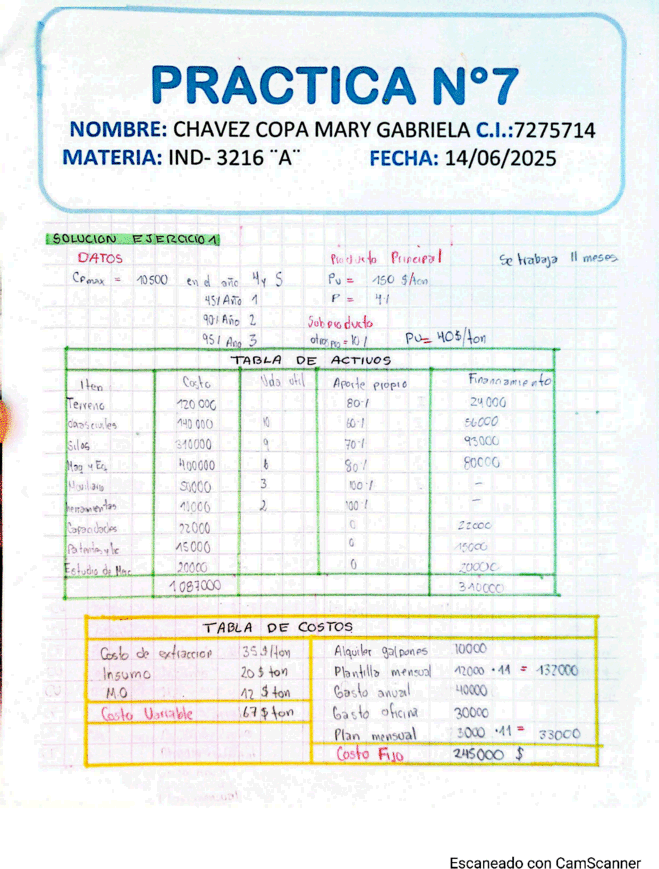 PRACTICA N°7
NOMBRE: CHAVEZ COPA MARY GABRIELA C.I.:7275714
MATERIA: IND- 3216 ¨A¨ FECHA: 14/06/2025
SOLUCION EJERCICIO 1
DATOS Producto Principal Se trabaja 11 meses
CPmax = 10500 en el año 4 y 5 Pu = 150 $/ton
45% Año 1 P = 4%
90% Año 2 Subproducto
95% Año 3 = 10% Pu = 40$/ton
TABLA DE ACTIVOS
Iten Costo Vida util Aporte propio Financiamiento
Terreno 120 000 80% 24000
140 000 10 60% 56000
Silos 310000 9 70% 93000
Maq y Eq 400000 8 80% 80000
50000 3 100% -
herramientas 2 100% -
22000 0 22000
15000 0 15000
Estudio de 20000 0 20000
1 087000 310000
TABLA DE COSTOS
Costo de extraccion 35 $/ton Alquiler galpones 10000
Insumo 20 $ ton Plantilla mensual 12000 · 11 = 132000
M.O 12 $ ton Gasto anual 40000
Costo Variable 67 $ ton Gasto oficina 30000
Plan mensual 3000 · 11 = 33000
Costo Fijo 245000 $
Escaneado con CamScanner